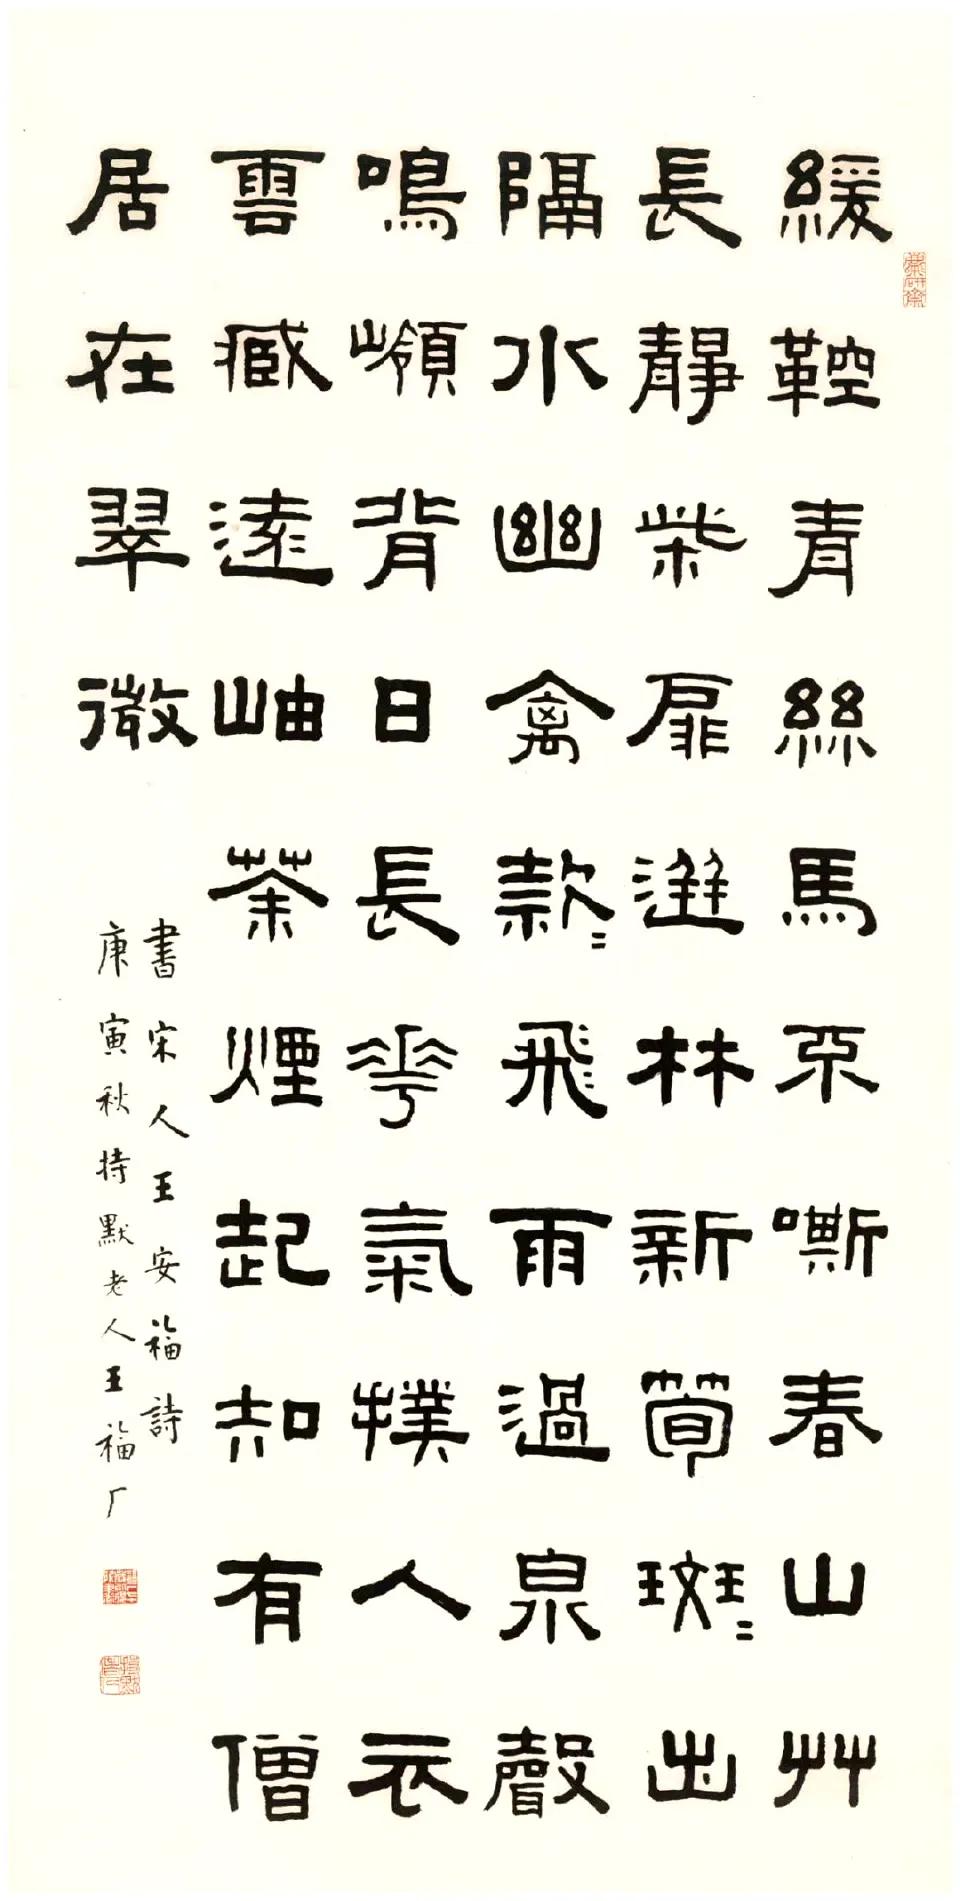 緩鞚青絲馬不嘶春山艸
長靜柴扉進林新筍斑〻出
隔水幽禽款〻飛雨過泉聲
鳴嶺背日長花氣撲人衣
雲臧遠岫茶煙起知有僧
居在翠微
書宋人王安福詩
庚寅秋持默老人王福厂